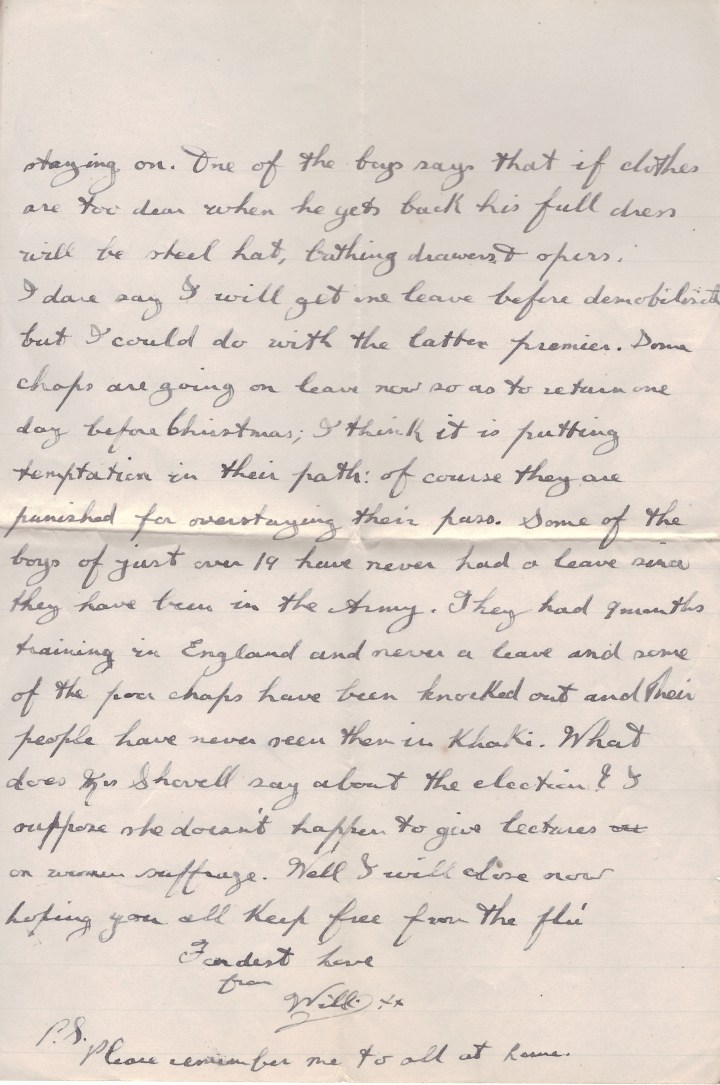 staying on. One of the boys says that if clothes
are too dear when he gets back his full dress
will be steel hat, bathing drawers & spurs.
I dare say I will get one leave before
but I could do with the latter premier. Some
chaps are going on leave now so as to return one
day before Christmas; I think it is putting
temptation in their path: of course they are
punished for overstaying their pass. Some of the
boys of just over 19 have never had a leave since
they have been in the Army. They had 9 months
training in England and never a leave and some
of the poor chaps have been knocked out and their
people have never seen them in Khaki. What
does Mrs Shovell say about the election? I
suppose she doesn't happen to give lectures
on women suffrage. Well I will close now
hoping you all keep free from the flu
Fondest love
from
Will. xx
P.S.
Please remember me to all at home.